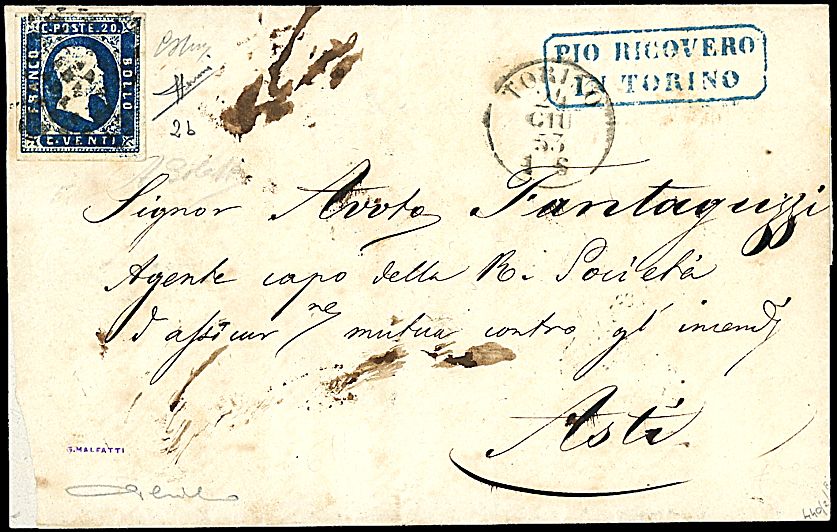 C. POSTE. 20.
FRANCO
BOLLO
C. VENTI
2b
PIO RICOVERO
DI TORINO
TORINO
24
GIU
53
1 S
Signor Avvto Fantaguzzi
Agente capo della Ri Società
d'assicurne mutua contro gl'incendj
Asti
G. MALFATTI